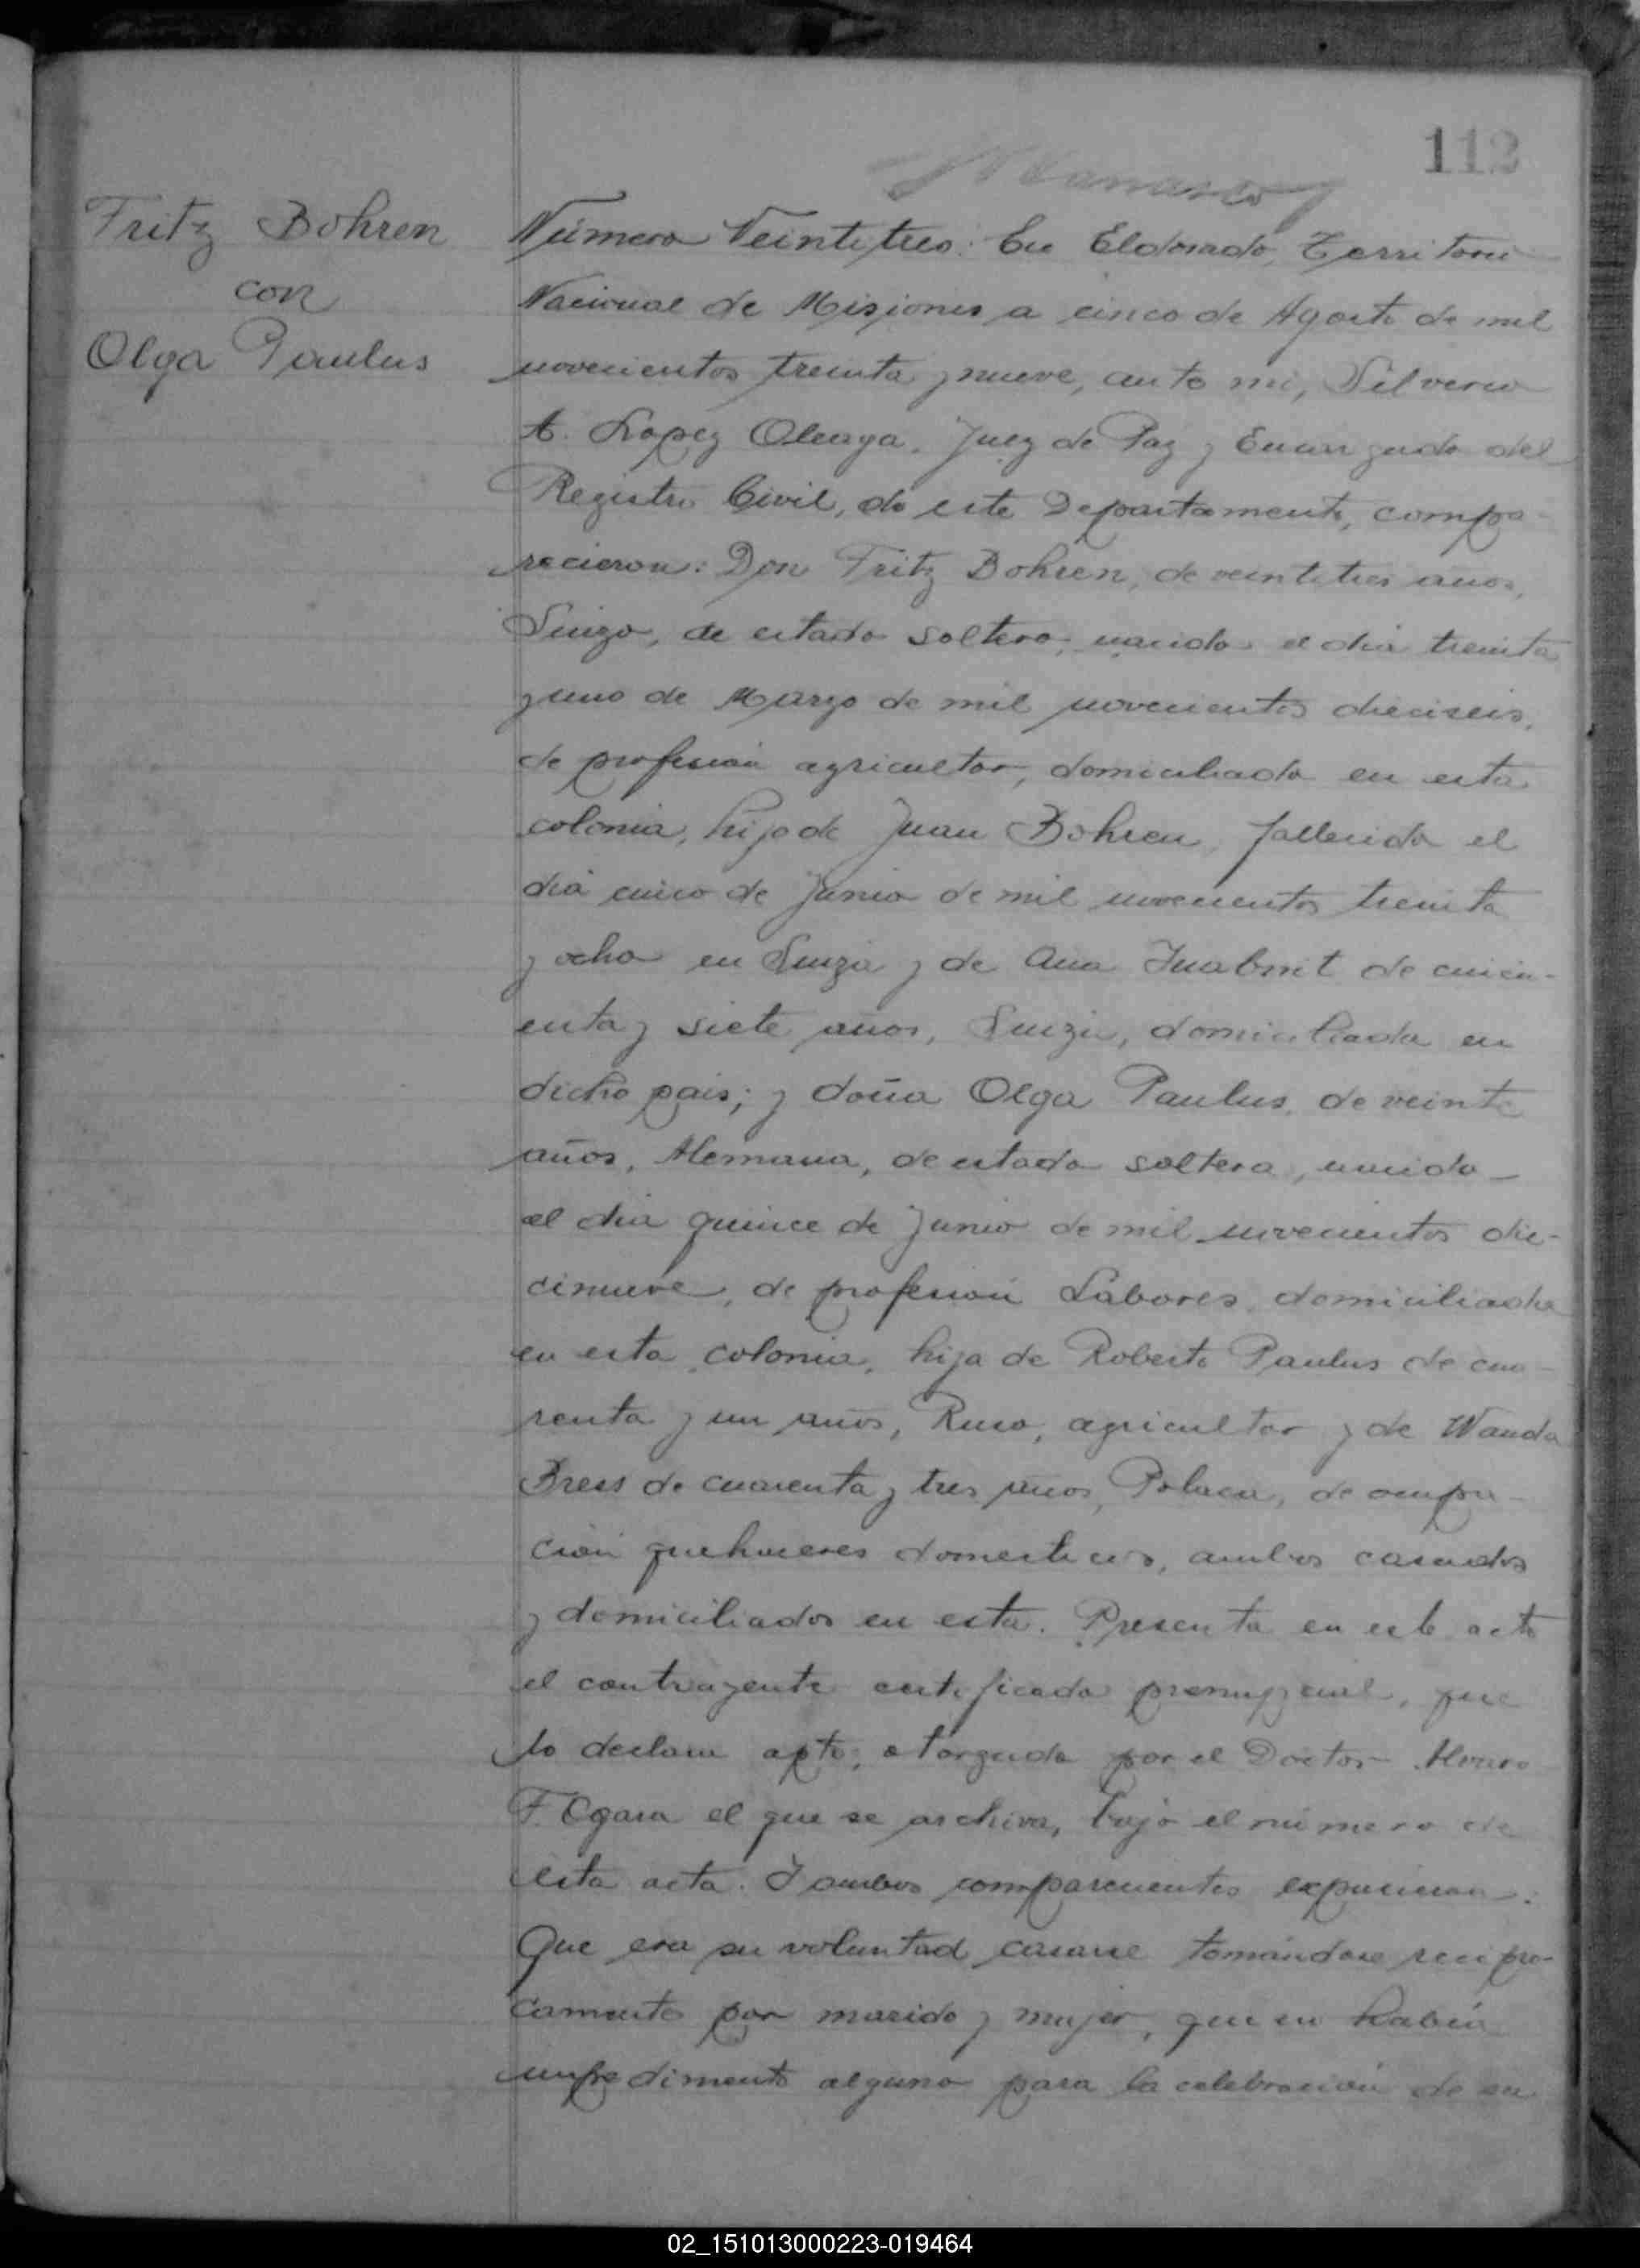 112
Fritz Bohren
con
Olga Paulus
Número Veintitres: En Eldorado, Territorio
Nacional de Misiones a cinco de Agosto de mil
novecientos treinta y nueve, ante mi, Silverio
A. Lopez Oleaga, Juez de Paz y Encargado del
Registro Civil, de este Departamento, compa-
recieron: Don Fritz Bohren, de veintitres años,
Suizo, de estado soltero, nacido el dia treinta
y uno de Marzo de mil novecientos dieciseis,
de profesión agricultor, domiciliado en esta
colonia, hijo de Juan Bohren, fallecido el
dia cinco de Junio de mil novecientos treinta
y ocho en Suiza y de Ana de cincu-
enta y siete años, Suiza, domiciliada en
dicho pais; y doña Olga Paulus, de veinte
años, Alemana, de estado soltera, nacida
el dia quince de Junio de mil novecientos die-
cinueve, de profesión Labores, domiciliada
en esta colonia, hija de Roberto Paulus de cua-
renta y un años, Ruso, agricultor y de Wanda
Bress de cuarenta y tres años, Polaca, de ocupa-
ción quehaceres domesticos, ambos casados
y domiciliados en esta. Presenta en este acto
el contrayente certificado prenupcial, que
lo declara apto, otorgado por el Doctor Alvaro
F. Ogara el que se archiva, bajo el número de
esta acta. Y ambos comparecientes expusieron:
Que era su voluntad casarse tomándose recipro-
camente por marido y mujer, que no habia
impedimento alguno para la celebración de su
02_151013000223-019464